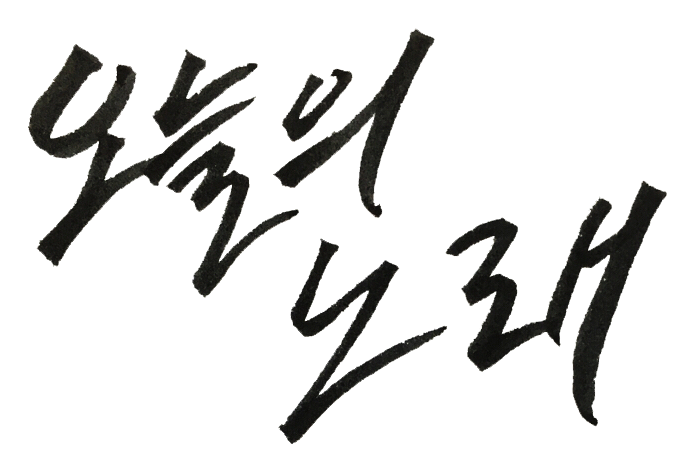 오늘의
노래